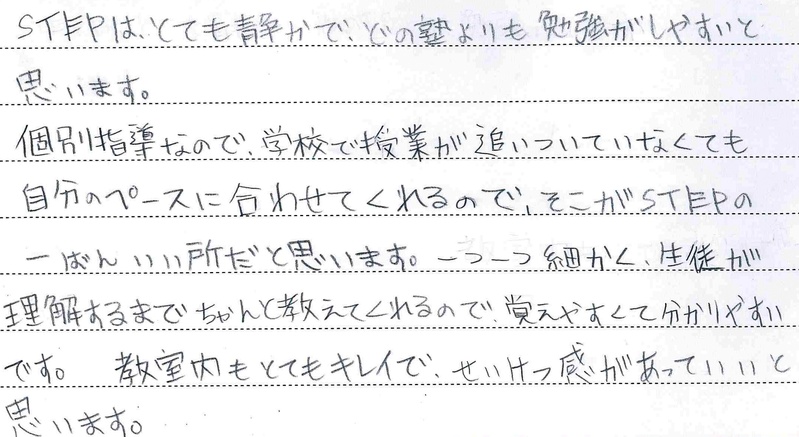 STEPは、とても静かで、どの塾よりも勉強がしやすいと
思います。
個別指導なので、学校で授業が追いついていなくても
自分のペースに合わせてくれるので、そこがSTEPの
一ばんいい所だと思います。一つ一つ細かく、生徒が
理解するまでちゃんと教えてくれるので、覚えやすくて分かりやすい
です。 教室内もとてもキレイで、せいけつ感があっていいと
思います。